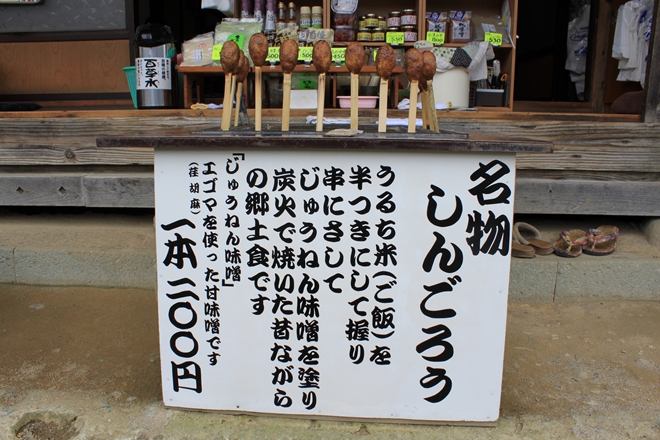 名物
しんごろう
うるち米(ご飯)を
半つきにして握り
串にさして
じゅうねん味噌を塗り
炭火で焼いた昔ながら
の郷土食です
「じゅうねん味噌」
エゴマを使った甘味噌です
(荏胡麻)
一本 二〇〇円
百草水